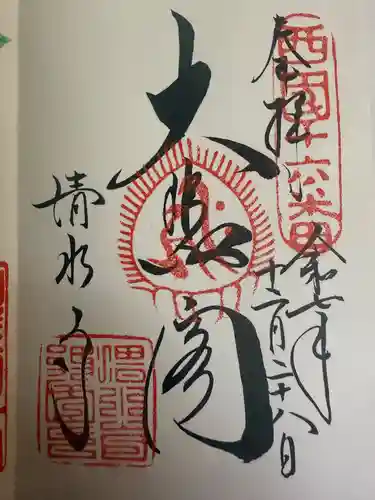 奉拝
西国十六番
令和七年
十二月二十八日
大悲閣
清水寺